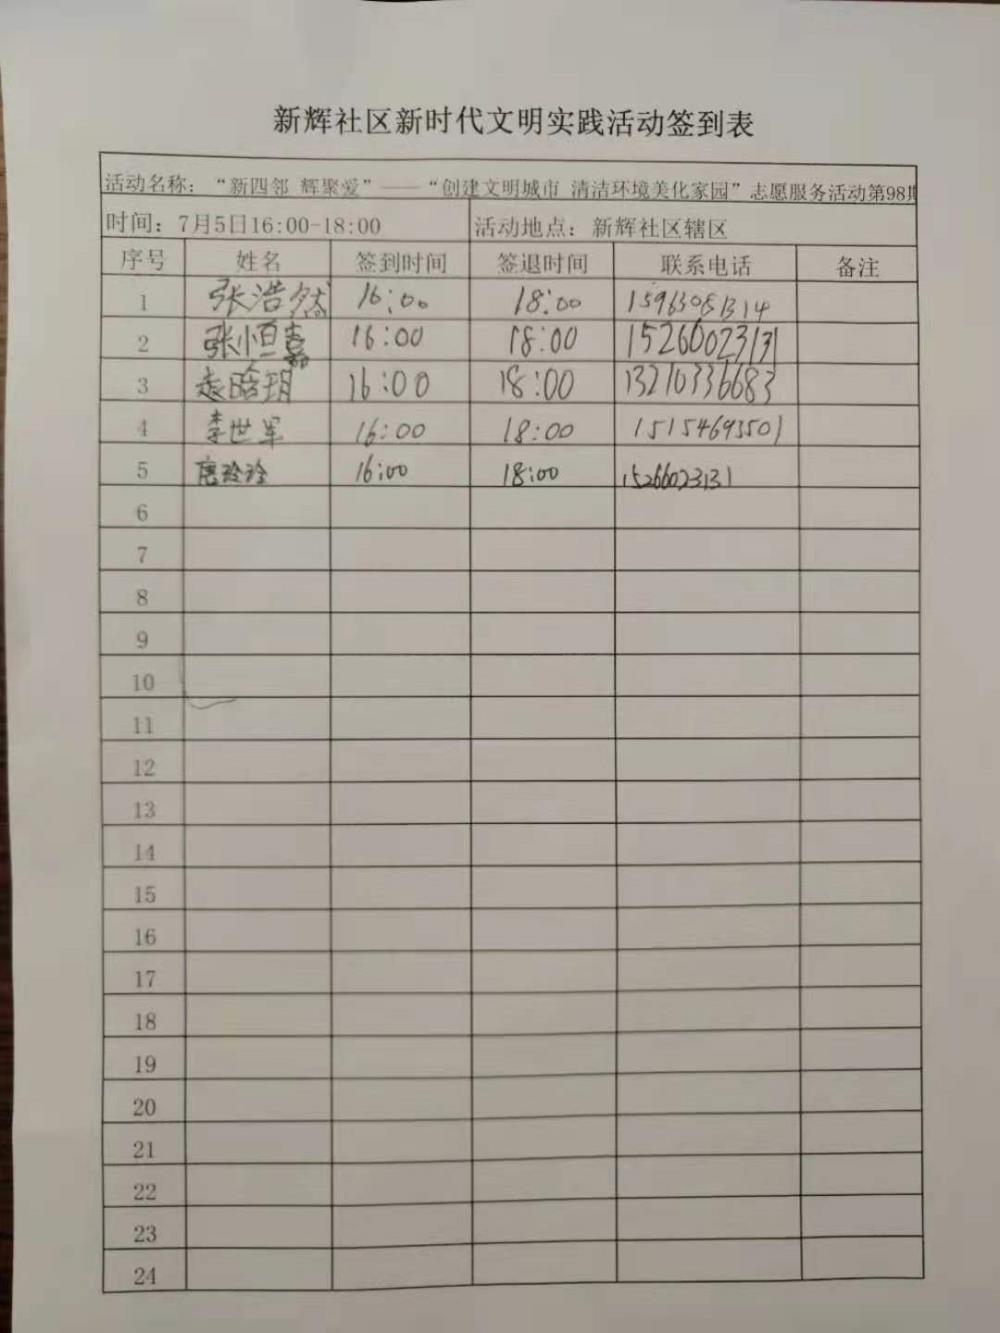 新辉社区新时代文明实践活动签到表
活动名称：“新四邻 辉聚爱”——“创建文明城市 清洁环境美化家园”志愿服务活动第98期
时间：7月5日16:00-18:00 活动地点：新辉社区辖区
序号 姓名 签到时间 签退时间 联系电话 备注
1 张浩然 16:00 18:00 15963081314
2 张恒嘉 16:00 18:00 15260023131
3 袁晗玥 16:00 18:00 13210336683
4 李世军 16:00 18:00 15154693501
5 唐玲玲 16:00 18:00 15266023131
6
7
8
9
10
11
12
13
14
15
16
17
18
19
20
21
22
23
24